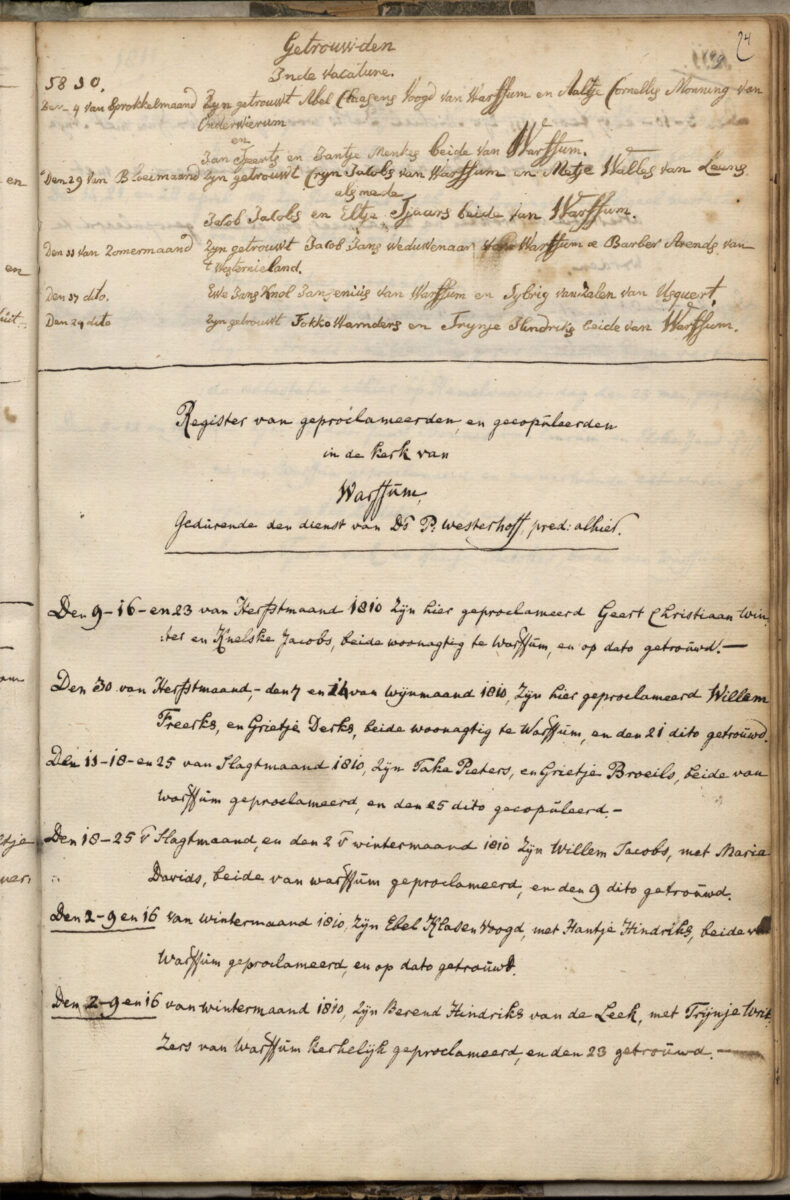 24
Getrouwden
Inde vacature.
1810.
Den 4 van Sprokkelmaand Zyn getrouwt Abel Claesens Voogd van Warffum en Aaltje Cornellis Monning van
Onderwierum
en
Jan Geerts en Jantje Menkes beide van Warffum.
Den 29 van Bloeimaand zyn getrouwt Cryn Jacobs van Warffum en Metje Walles van Leens
als mede
Jacob Jacobs en Eltje Tjaars beide van Warffum.
Den 11 van Zomermaand Zyn getrouwt Jacob Jans Weduwenaar van Warffum & Barber Arends van
't Westernieland.
Den 17 dito. Ewe Jans Knol van Warffum en Sybrig van Zalen van Usquert.
Den 24 dito Zyn getrouwt Fokko Warnders en Trynje Hindriks beide van Warffum.
Register van geproclameerden, en gecopuleerden
in de kerk van
Warffum,
Gedurende den dienst van Ds P. Westerhoff, pred: alhier.
Den 9-16-en 23 van Herfstmaand 1810 Zyn hier geproclameerd Geert Christiaan Win-
:ter en Knelske Jacobs, beide woonagtig te Warffum, en op dato getrouwd.—
Den 30 van Herfstmaand,- den 7 en 14 van Wijnmaand 1810, Zyn hier geproclameerd Willem
Freerks, en Grietje Derks, beide woonagtig te Warffum, en den 21 dito getrouwd.
Den 11-18-en 25 van Slagtmaand 1810, Zyn Take Pieters, en Grietje Broeils, beide van
Warffum geproclameerd, en den 25 dito gecopuleerd.-
Den 18-25 v Slagtmaand, en den 2 v wintermaand 1810 Zyn Willem Jacobs, met Maria
Davids, beide van Warffum geproclameerd, en den 9 dito getrouwd.
Den 2-9 en 16 van wintermaand 1810, Zyn Ebel Klasen Voogd, met Hantje Hindriks, beide v
Warffum geproclameerd, en op dato getrouwd.
Den 2-9 en 16 van wintermaand 1810, Zyn Berend Hindriks van de Leek, met Trijnje Writ
Zers van Warffum kerkelijk geproclameerd, en den 23 getrouwd.—